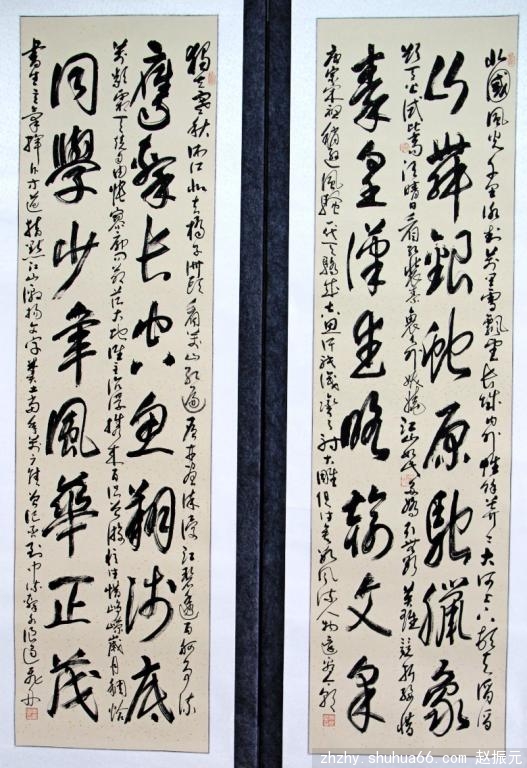 北國風光千里冰封萬里雪飄望长城内外惟餘莽莽大河上下頓失滔滔
山舞銀蛇原馳臘象
欲與天公试比高須晴日看紅裝素裹分外妖嬈江山如此多嬌引無數英雄競折腰惜
秦皇漢武略輸文采
唐宗宋祖稍遜風騷一代天驕成吉思汗只識彎弓射大雕俱往矣数風流人物還看今朝
獨立寒秋湘江北去橘子洲頭看萬山紅遍層林盡染漫江碧透百舸争流
鷹擊长空魚翔浅底
萬類霜天競自由悵寥廓問蒼茫大地誰主沉浮携来百侣曾游忆往昔崢嶸歲月稠恰
同學少年風華正茂
書生意氣揮斥方遒指點江山激揚文字糞土當年萬户侯曾记否到中流擊水浪遏飛舟
zhzhy.shuhua66.com 赵振元